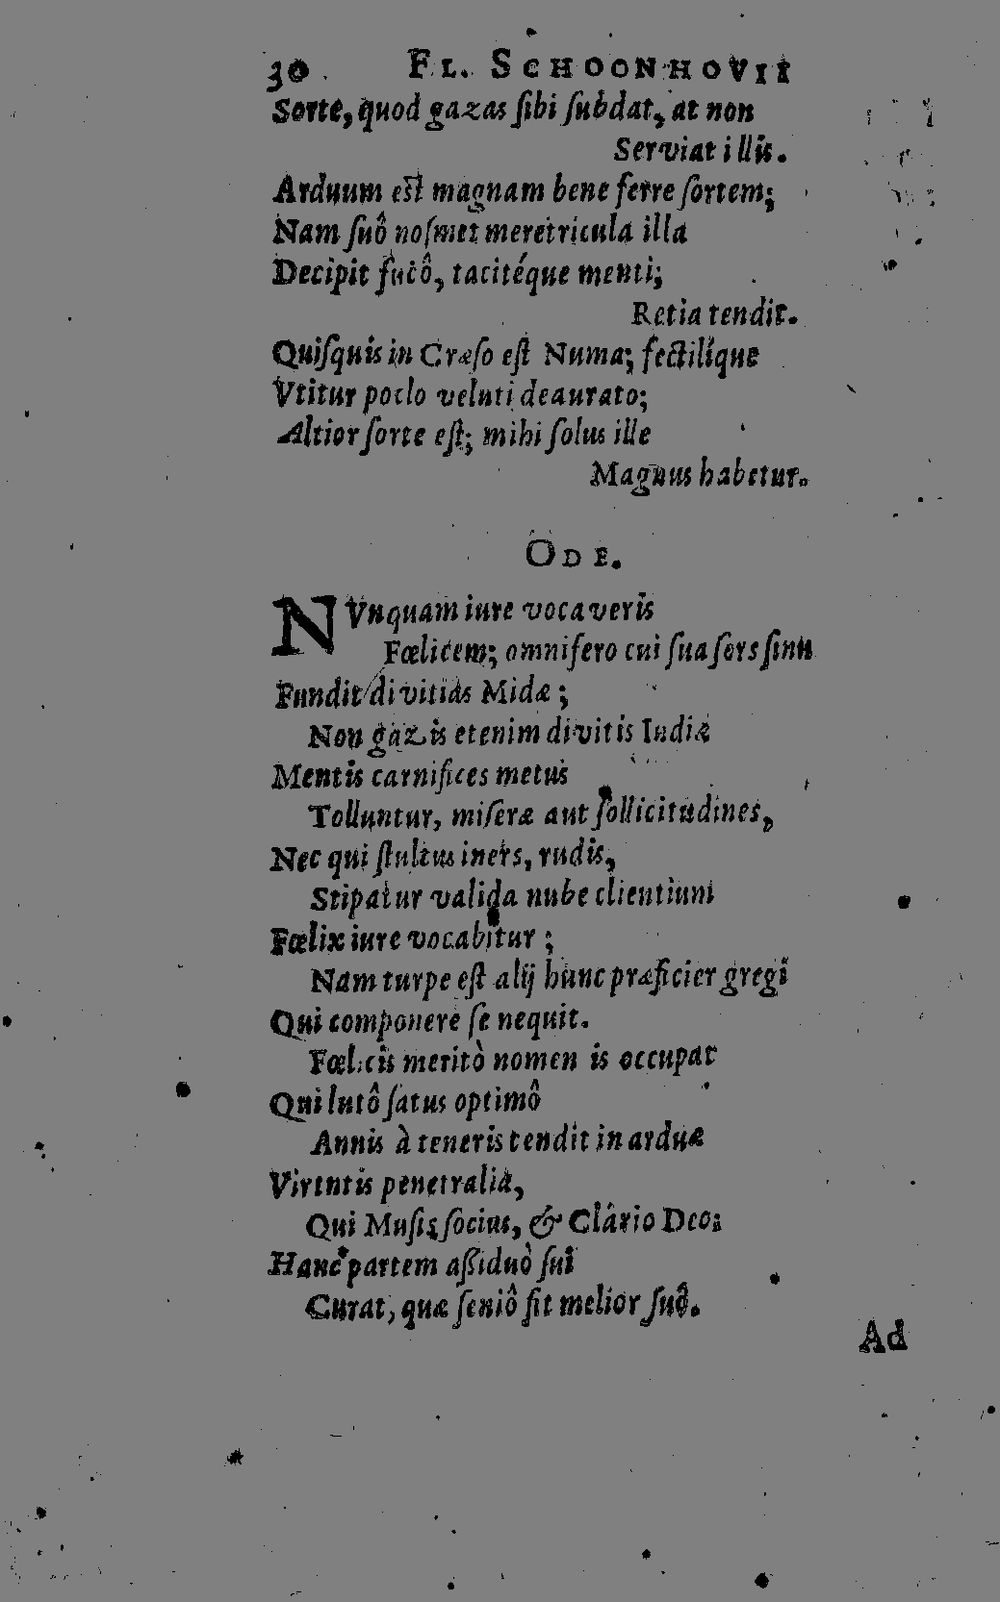 30 FL. SCHOONHOVII
Sorte, quod gazas ſibi ſubdat, at non
Serviat illis.
Arduum eſt magnam bene ferre ſortem;
Nam ſuô noſmet meretricula illa
Decipit fucô, tacitéque menti;
Retia tendit.
Quiſquis in Crœſo eſt Numa; fectilíque
Vtitur poclo veluti deaurato;
Altior ſorte eſt; mihi ſolus ille
Magnus habetur.
ODE.
NVnquam iure vocaveris
Fœlicem; omnifero cui ſua ſors ſinu
Fundit divitias Midæ;
Non gazis etenim divitis Indiæ
Mentis carnifices metus
Tolluntur, miſeræ aut ſollicitudines,
Nec qui ſtultus iners, rudis,
Stipatur valida nube clientium
Fœlix iure vocabitur;
Nam turpe eſt alij hunc præficier gregi
Qui componere ſe nequit.
Fœlicis meritò nomen is occupat
Qui lutô ſatus optimô
Annis à teneris tendit in arduæ
Virtutis penetralia,
Qui Muſis ſocius, & Clario Deo:
Hanc partem aſſiduò ſui
Curat, quæ ſeniô fit melior ſuô.
Ad